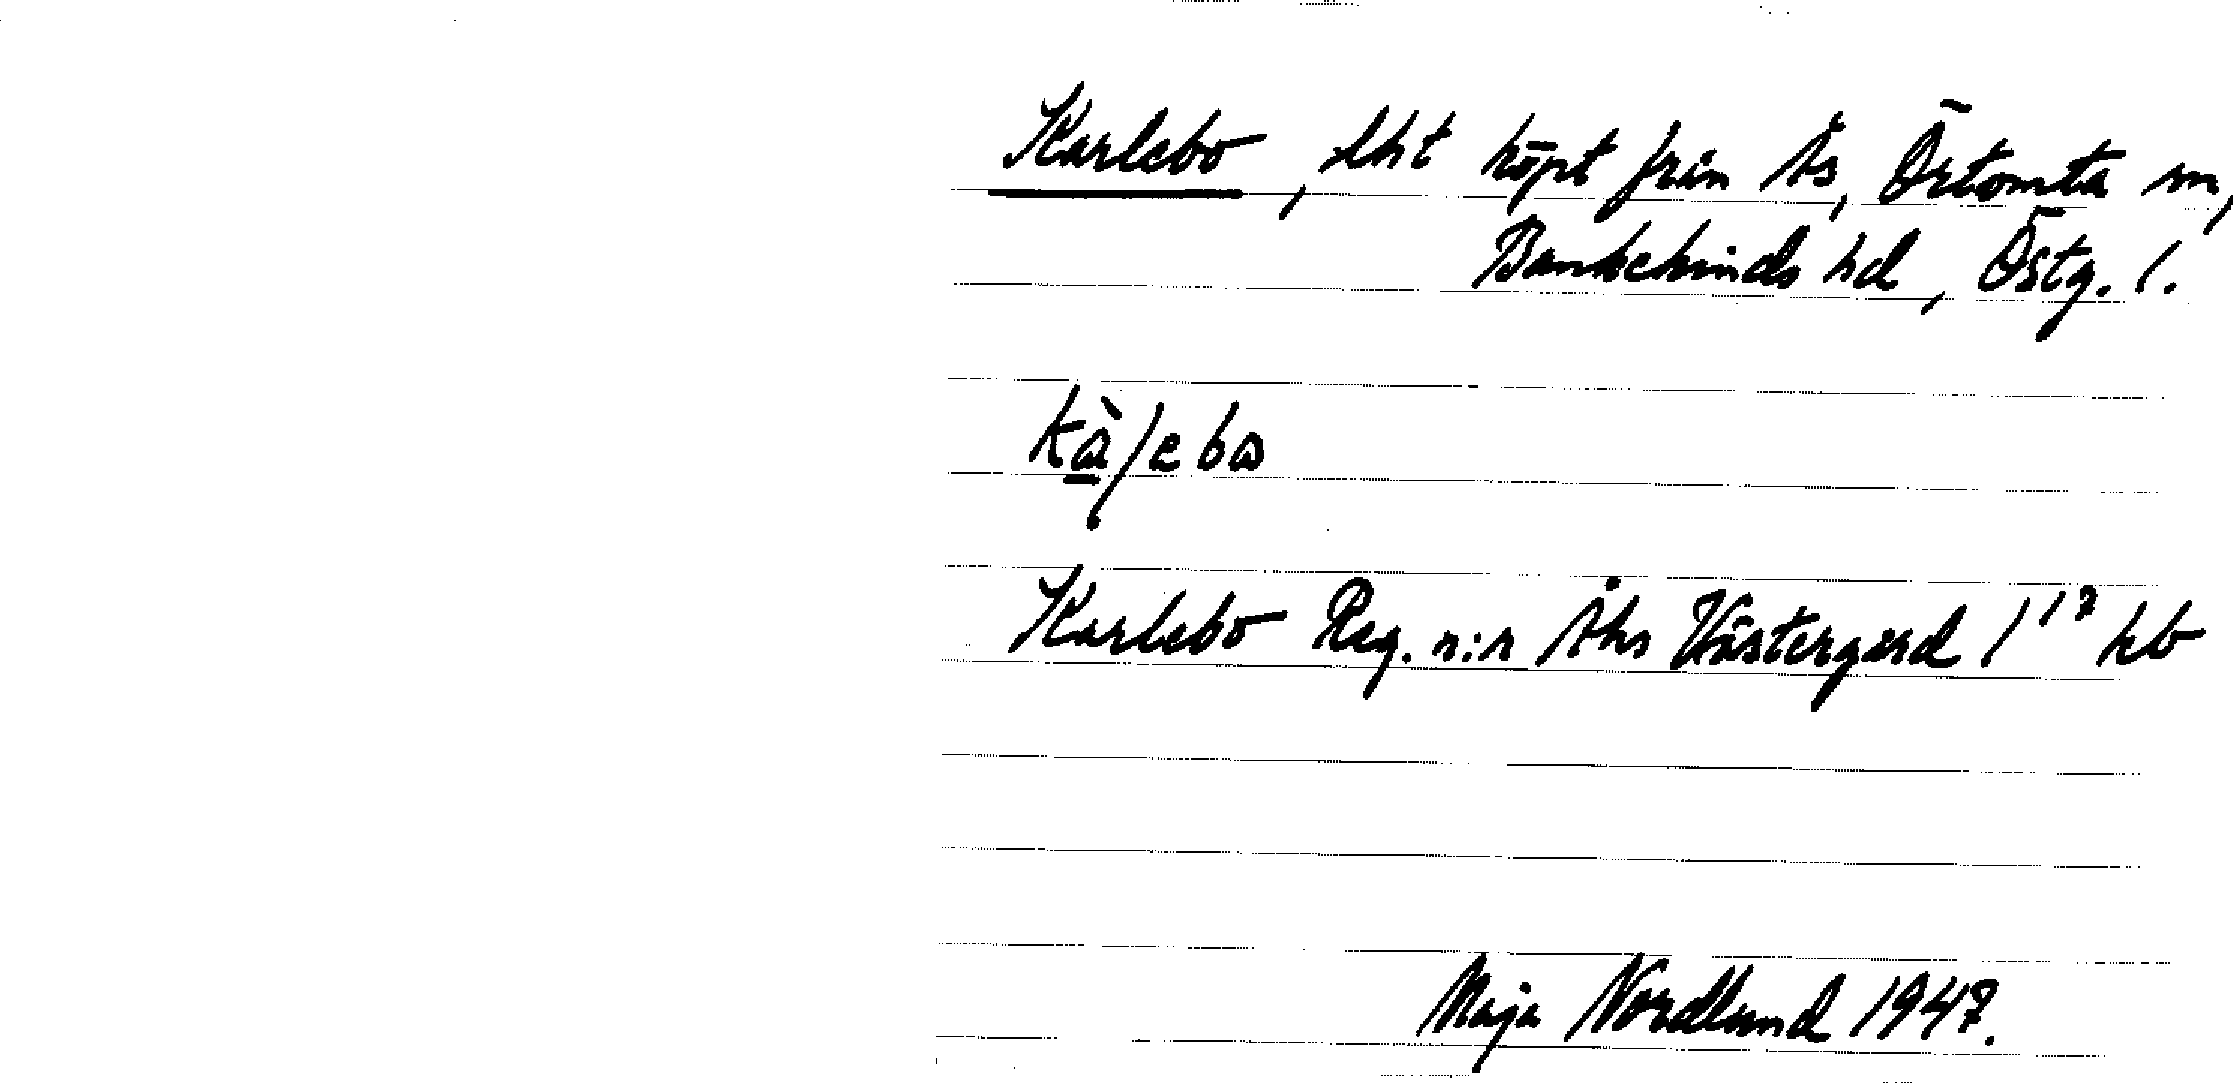 Karlebo, lht köpt från Ås, Örtomta sn,
Bankekinds hd, Östg. l.
kàɽebω
Karlebo Reg. n:r Åhs Västergård 1¹² kb
Maja Nordlund 1947.